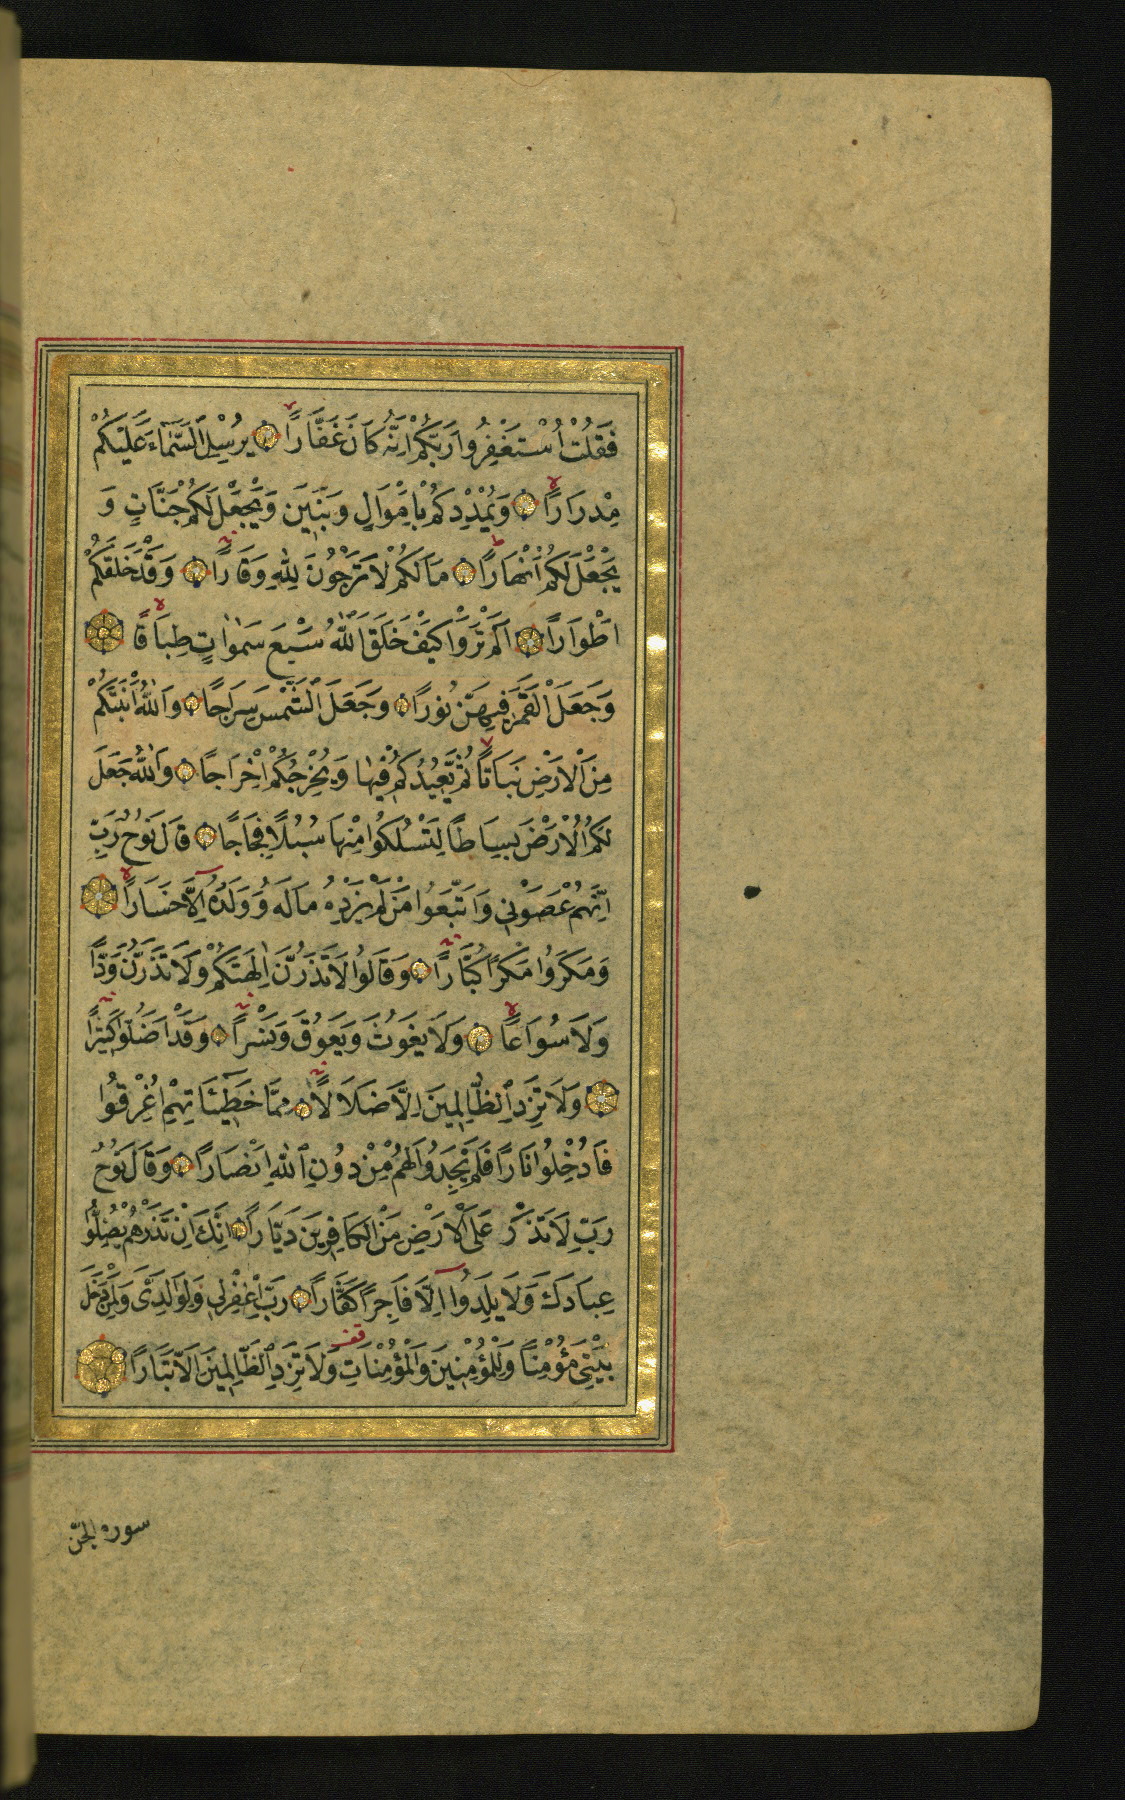 فَقُلْتُ اسْتَغْفِرُوا رَبَّكُمْ اِنَّهُ كَانَ غَفَّارًا يُرْسِلِ السَّمَاءَ عَلَيْكُمْ
مِدْرَارًا وَيُمْدِدْكُمْ بِاَمْوَالٍ وَبَنِينَ وَيَجْعَلْ لَكُمْ جَنَّاتٍ وَ
يَجْعَلْ لَكُمْ اَنْهَارًا مَا لَكُمْ لَا تَرْجُونَ لِلّٰهِ وَقَارًا وَقَدْ خَلَقَكُمْ
اَطْوَارًا اَلَمْ تَرَوْا كَيْفَ خَلَقَ اللّٰهُ سَبْعَ سَمٰوَاتٍ طِبَاقًا
وَجَعَلَ الْقَمَرَ فِيهِنَّ نُورًا وَجَعَلَ الشَّمْسَ سِرَاجًا وَاللّٰهُ اَنْبَتَكُمْ
مِنَ الْاَرْضِ نَبَاتًا ثُمَّ يُعِيدُكُمْ فِيهَا وَيُخْرِجُكُمْ اِخْرَاجًا وَاللّٰهُ جَعَلَ
لَكُمُ الْاَرْضَ بِسَاطًا لِتَسْلُكُوا مِنْهَا سُبُلًا فِجَاجًا قَالَ نُوحٌ رَبِّ
اِنَّهُمْ عَصَوْنِي وَاتَّبَعُوا مَنْ لَمْ يَزِدْهُ مَالُهُ وَوَلَدُهُ اِلَّا خَسَارًا
وَمَكَرُوا مَكْرًا كُبَّارًا وَقَالُوا لَا تَذَرُنَّ اٰلِهَتَكُمْ وَلَا تَذَرُنَّ وَدًّا
وَلَا سُوَاعًا وَلَا يَغُوثَ وَيَعُوقَ وَنَسْرًا وَقَدْ اَضَلُّوا كَثِيرًا
وَلَا تَزِدِ الظَّالِمِينَ اِلَّا ضَلَالًا مِمَّا خَطِيئَاتِهِمْ اُغْرِقُوا
فَاُدْخِلُوا نَارًا فَلَمْ يَجِدُوا لَهُمْ مِنْ دُونِ اللّٰهِ اَنْصَارًا وَقَالَ نُوحٌ
رَبِّ لَا تَذَرْ عَلَى الْاَرْضِ مِنَ الْكَافِرِينَ دَيَّارًا اِنَّكَ اِنْ تَذَرْهُمْ يُضِلُّوا
عِبَادَكَ وَلَا يَلِدُوا اِلَّا فَاجِرًا كَفَّارًا رَبِّ اغْفِرْ لِي وَلِوَالِدَيَّ وَلِمَنْ دَخَلَ
بَيْتِيَ مُؤْمِنًا وَلِلْمُؤْمِنِينَ وَالْمُؤْمِنَاتِ وَلَا تَزِدِ الظَّالِمِينَ اِلَّا تَبَارًا
سوره الجنّ